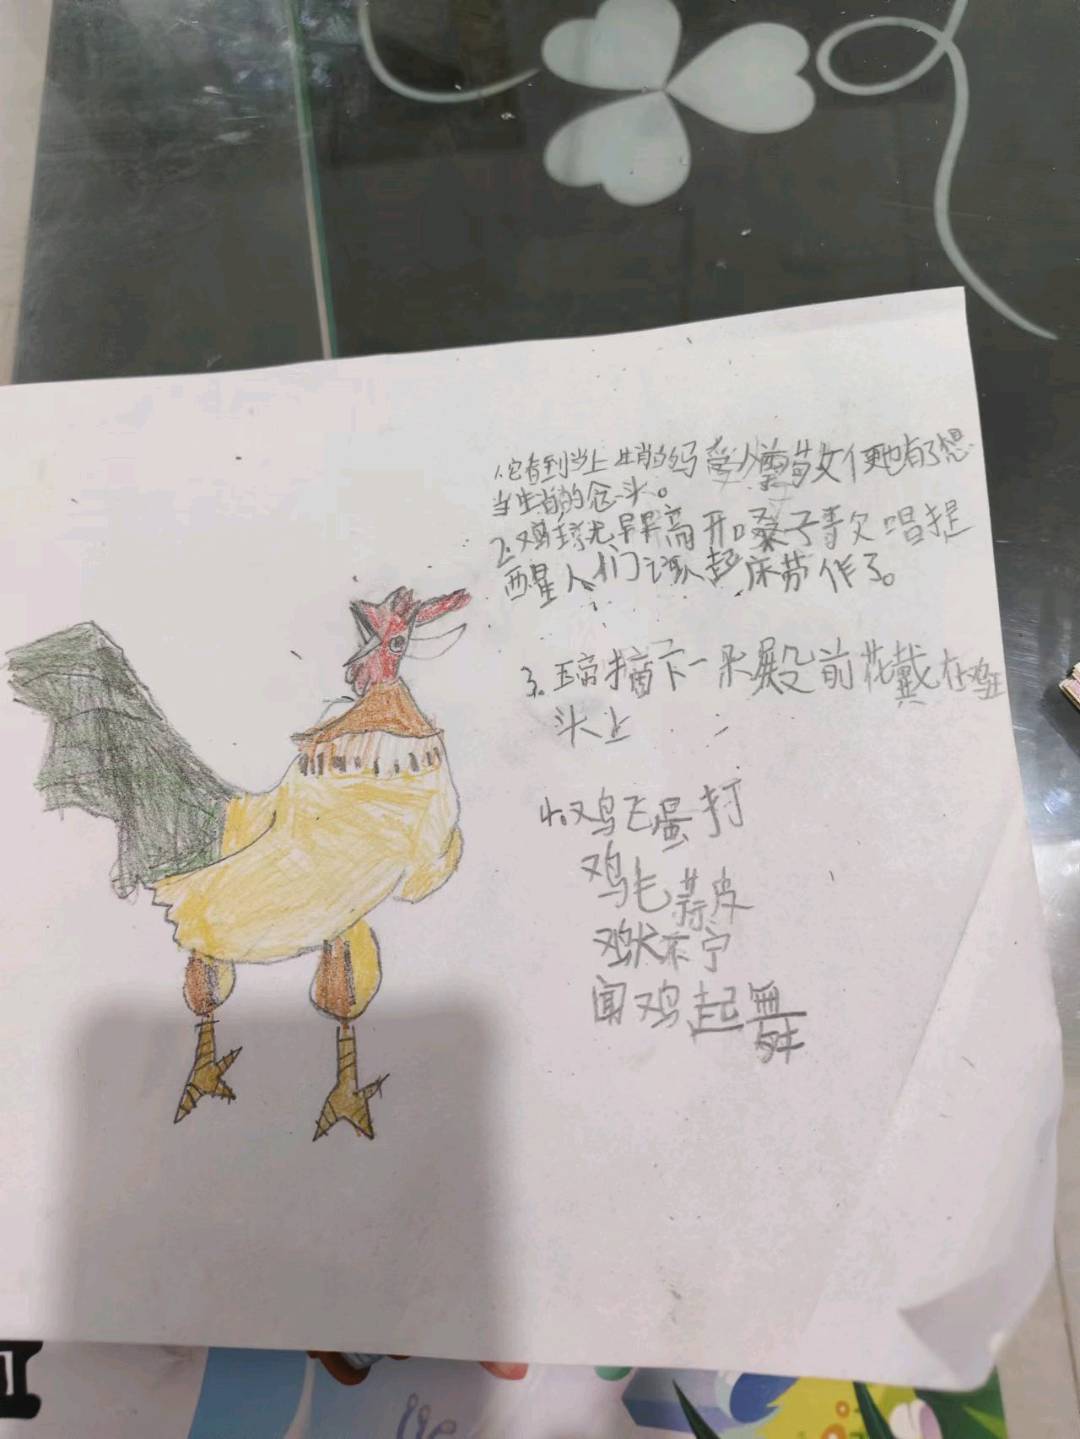 1.它看到当上生肖的马受人尊敬便也有了想
当生肖的念头。
2.鸡王就早早亮开嗓子歌唱提
醒人们该起床劳作了。
3.玉帝摘下一朵殿前花戴在鸡王
头上
4.鸡飞蛋打
鸡毛蒜皮
鸡犬不宁
闻鸡起舞